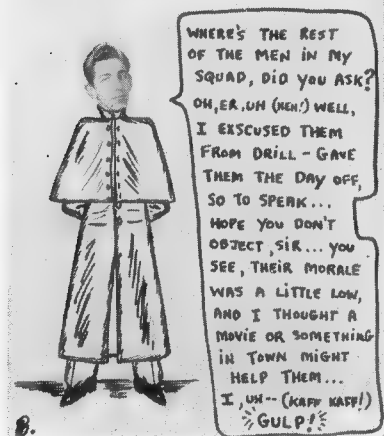 WHERE'S THE REST
OF THE MEN IN MY
SQUAD, DID YOU ASK?
OH, ER, UH (HEH!) WELL,
I EXSCUSED THEM
FROM DRILL - GAVE
THEM THE DAY OFF,
SO TO SPEAK...
HOPE YOU DON'T
OBJECT, SIR... YOU
SEE, THEIR MORALE
WAS A LITTLE LOW,
AND I THOUGHT A
MOVIE OR SOMETHING
IN TOWN MIGHT
HELP THEM...
I, UH-- (KAFF KAFF!)
GULP!
B.